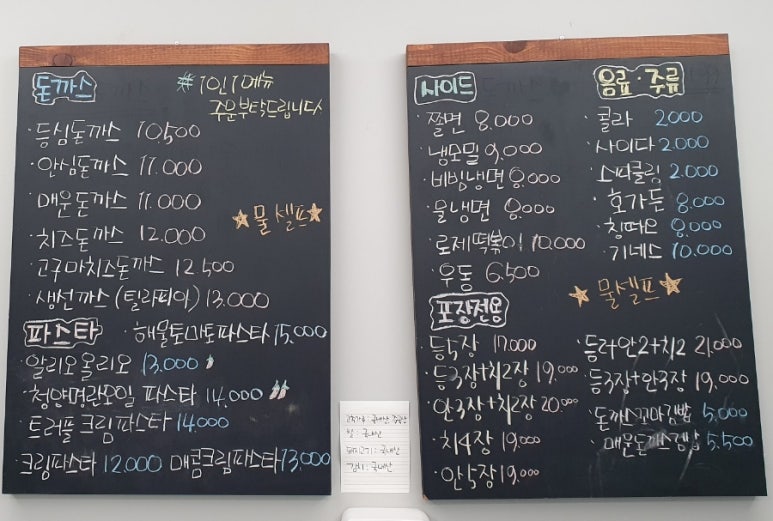 돈까스
#1인1메뉴
주문부탁드립니다
· 등심돈까스 10,500
· 안심돈까스 11.000
· 매운돈까스 11.000
· 치즈돈까스 12.000
· 고구마치즈돈까스 12.500
· 생선까스 (틸라피아) 13.000
★물셀프★
파스타
· 해물토마토파스타 15,000
· 알리오올리오 13.000
· 청양명란오일 파스타 14,000
· 트러플 크림파스타 14000
· 크림파스타 12.000 매콤크림파스타 13,000
사이드
· 쫄면 8.000
· 냉모밀 9,000
· 비빔냉면 8.000
· 물냉면 8.000
· 로제떡볶이 10,000
· 우동 6,500
음료·주류
· 콜라 2000
· 사이다 2.000
· 스파클링 2.000
· 호가든 8.000
· 칭따오 8,000
· 기네스 10.000
★물셀프★
포장전용
· 등5장 17.000
· 등3장+치2장 19,000
· 안3장+치2장 20.000
· 치4장 19,000
· 안5장 19,000
· 등2안2+치2 21,000
· 등3장+안3장 19,000
· 돈까스꼬마김밥 5,000
· 매운돈까스김밥 5,500
쌀 : 국내산
돼지고기 : 국내산
김치 : 국내산